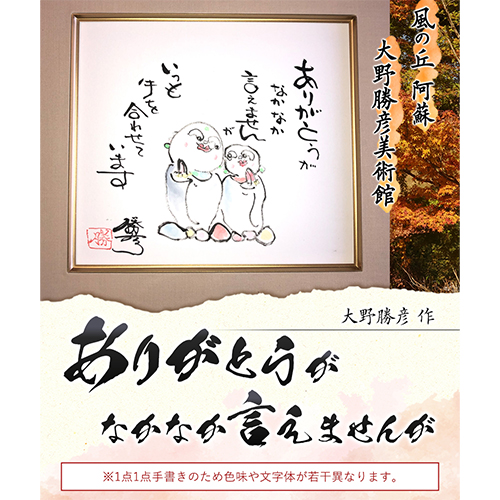 風の丘 阿蘇
大野勝彦美術館
ありがとうが
なかなか
言えませんが
いつも
手を
合わせて
います
勝
大野勝彦 作
ありがとうが
なかなか言えませんが
※1点1点手書きのため色味や文字体が若干異なります。